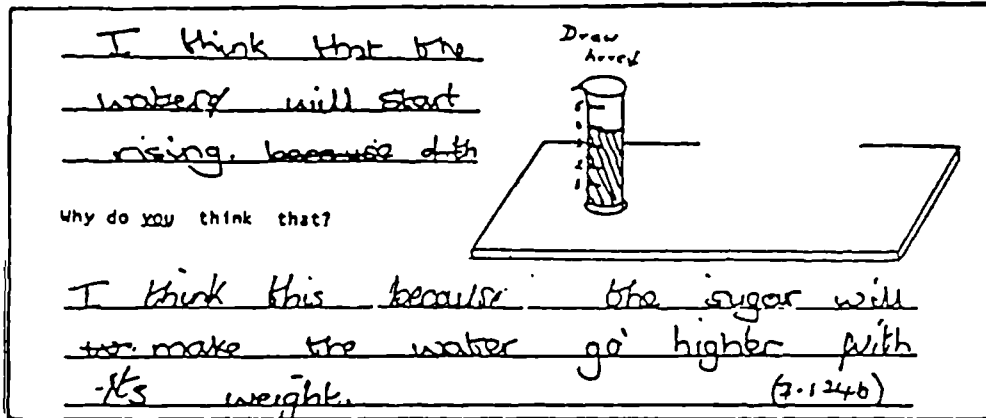 I think that the
water will start
rising. because
Draw
Arrow
5
4
3
2
1
Why do you think that?
I think this because the sugar will
make the water go higher with
its weight.
(7.124b)